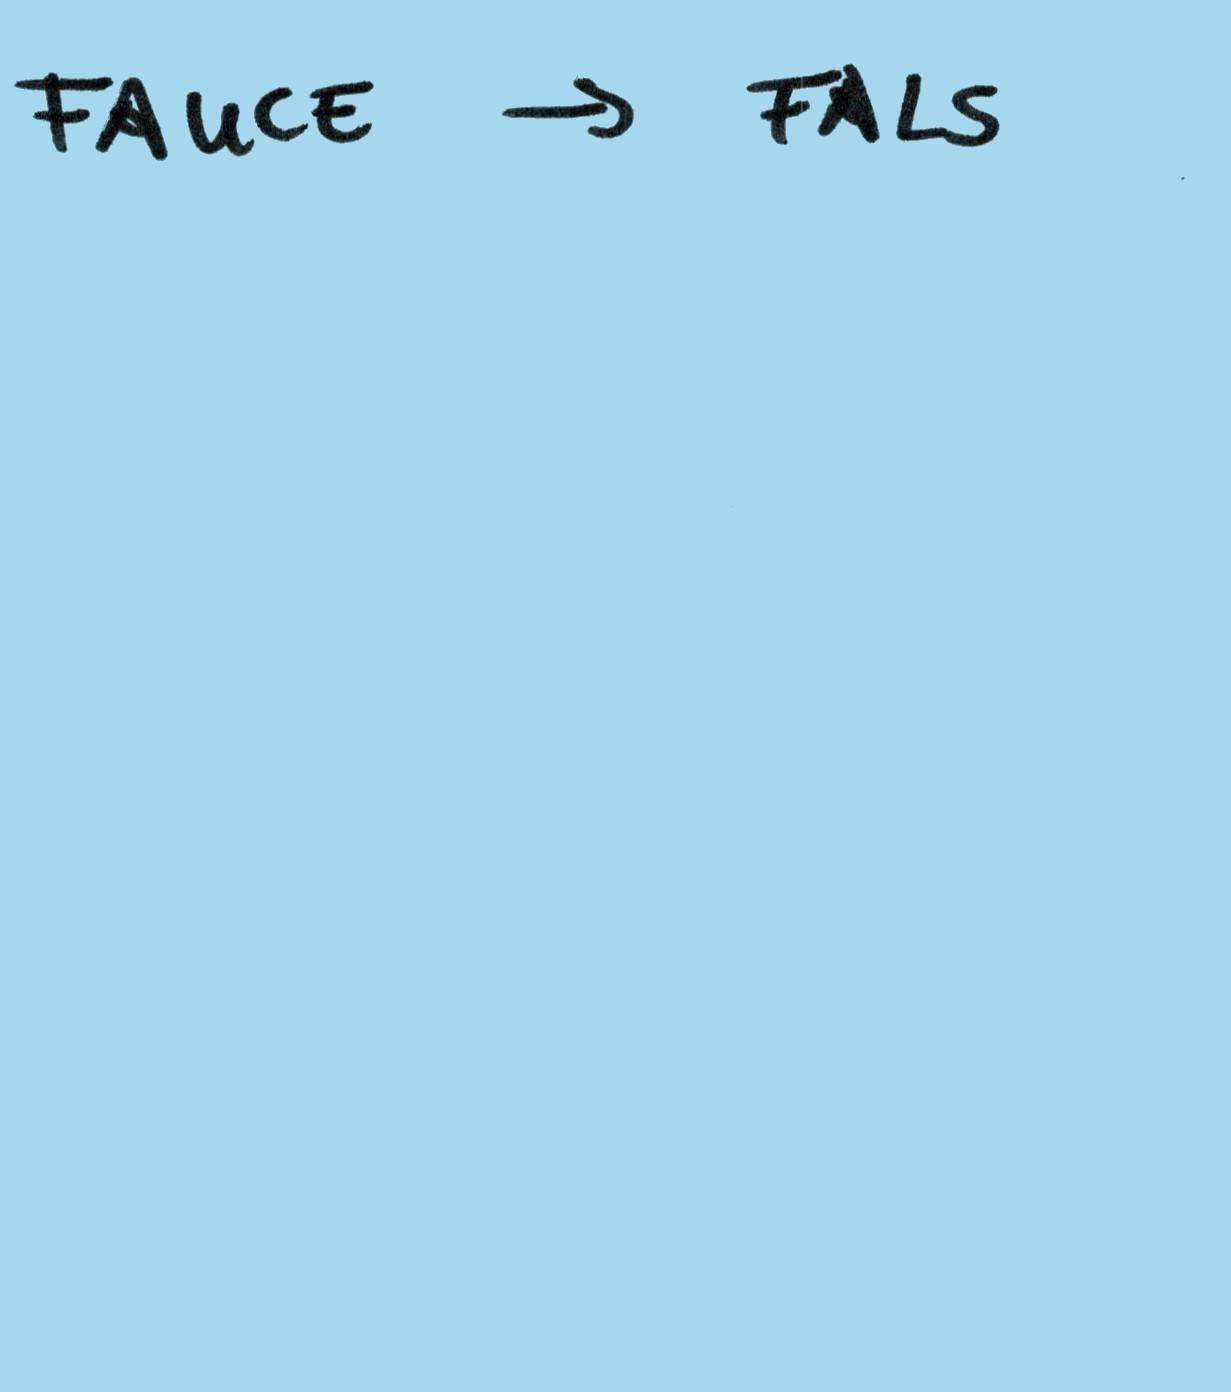 FAUCE → FALS